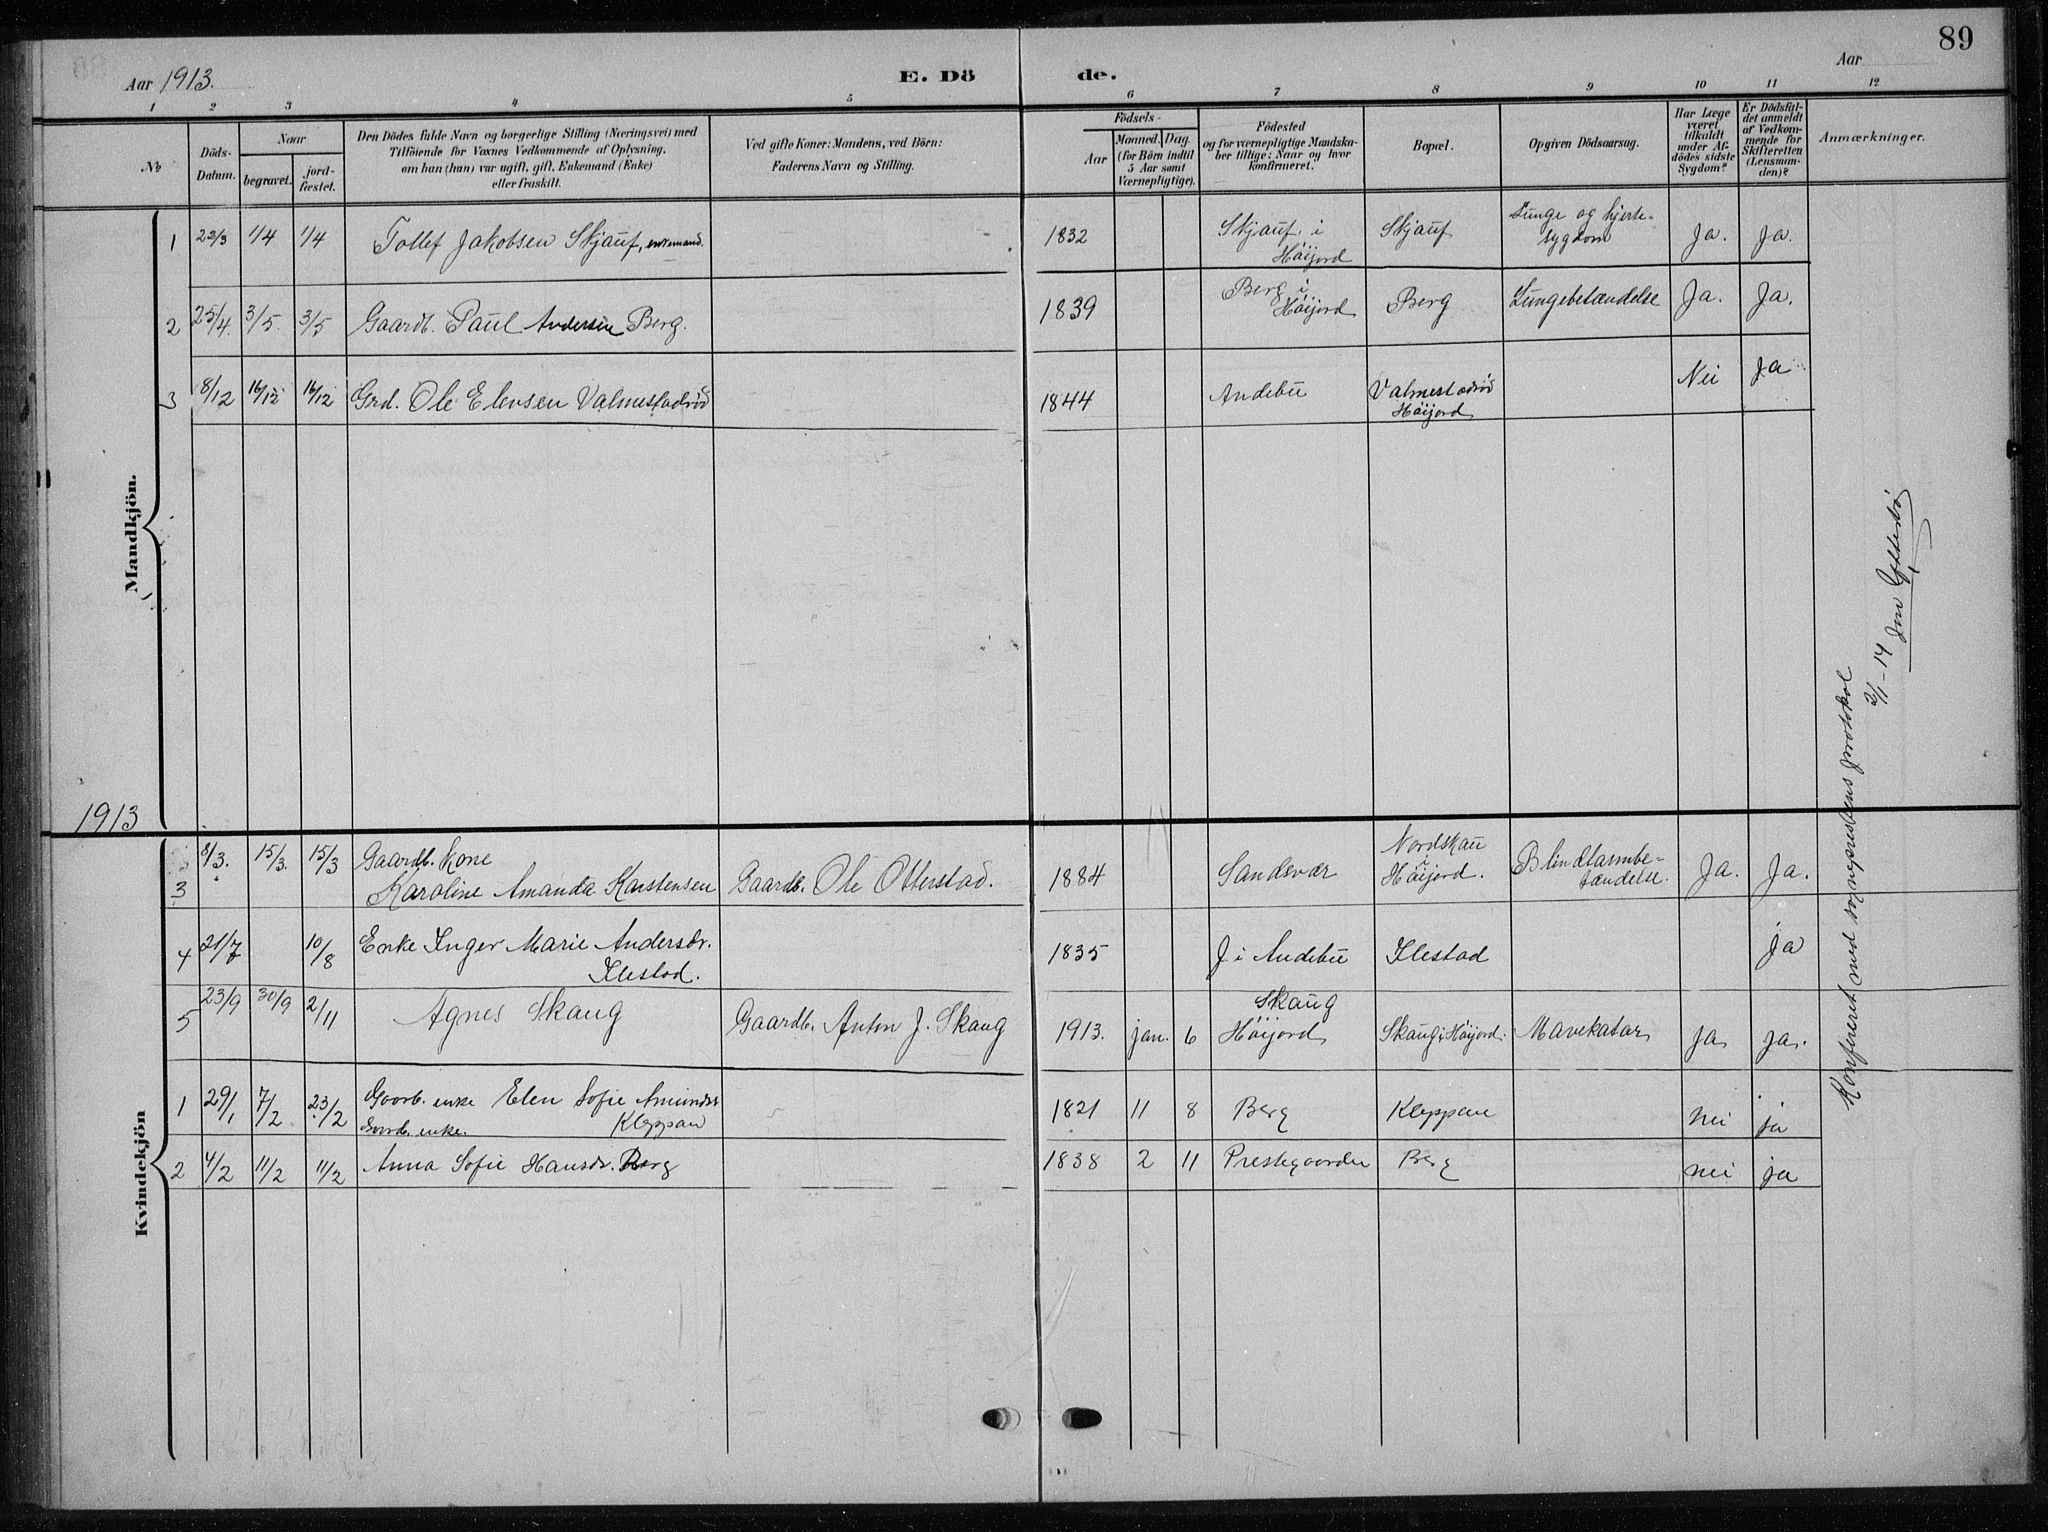 89
Aar 1913. E. Dö de. Aar
1 2 3 4 5 6 7 8 9 10 11 12
№
Döds-Datum.
Naar
begravet.
jord-fæstet.
Den Dödes fulde Navn og borgerlige Stilling (Næringsvei) med
Tilföiende for Voxnes Vedkommende af Oplysning,
om han (hun) var ugift, gift, Enkemand (Enke)
eller fraskilt.
Ved gifte Koner: Mandens, ved Börn:
Faderens Navn og Stilling.
Födsels-
Aar
Maaned. Dag.
(for Börn indtil
5 Aar samt
Værnepligtige).
Födested
og for værnepligtige Mandska-
ber tillige: Naar og hvor
konfirmeret.
Bopæl.
Opgiven Dödsaarsag.
Har Læge
været
tilkaldt
under Af-
dödes sidste
Sygdom?
Er Dödsfal-
det anmeldt
af Vedkom-
mende for
Skifteretten
(Lensman-
den)?
Anmærkninger.
Mandkjön.
1 23/3 1/4 1/4 Tollef Jakobsen Skjauf, enkemand. 1832 Skjauf i Höijord Skjauf Lunge og hjerte-sygdom Ja. Ja.
2 25/4. 3/5. 3/5 Gaardb. Paul Andersen Berg. 1839 Berg i Höijord Berg Lungebetændelse Ja. Ja.
3 8/12 16/12 16/12 Grd. Ole Elensen Valmestadröd 1844 Andebu Valmestadröd Höijord Nei Ja
1913
Kvindekjön
3 8/3. 15/3. 15/3 Gaardb. kone
Karoline Amanda Karstensen Gaardb. Ole Otterstad. 1884 Sandsvær Nordskau i Höijord. Blindtarmbe-tændelse. Ja. Ja.
4 21/7 10/8 Enke Inger Marie Andersdr.
Ilestad. 1835 J. i Andebu Ilestad Ja
5 23/9 30/9 2/11 Agnes Skaug Gaardb. Anton J. Skaug 1913. jan. 6 Skaug Höijord Skaug i Höijord. Mavekatar Ja Ja.
1 29/1 7/2 23/2 Gaardb. enke Elen Sofie Amundsdr
Kleppan 1821 11 8 Berg Kleppan nei ja
2 4/2 11/2 11/2 Gaardb. enke.
Anna Sofie Hansdr. Berg 1838 2 11 Prestegaarden Berg nei ja
Konfereret med sogneprestens protokol
2/1-14